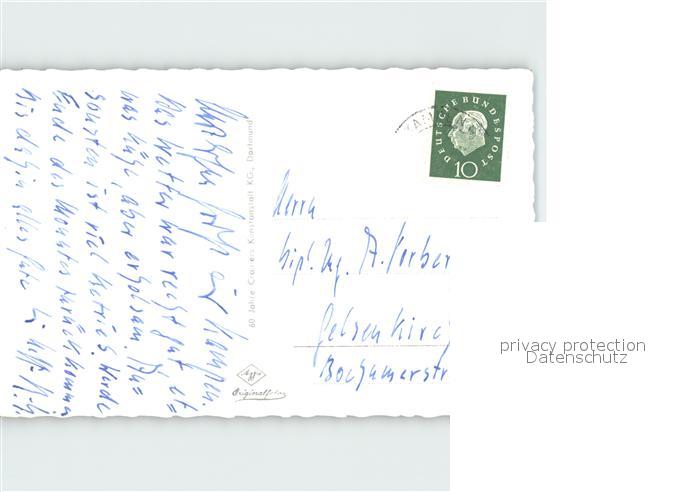 das Wetter war recht gut, et=
was kühl, aber erholsam. An=
sonsten ist viel Betrieb. Werde
Ende des Monats zurück kommen
Bis dahin alles Gute
60 Jahre Cramers Kunstanstalt KG., Dortmund
Agfa
Originalfoto
DEUTSCHE BUNDESPOST
10
Herrn
Dipl. Ing. A.
Gelsenkirch
Bochumerstr
privacy protection
Datenschutz